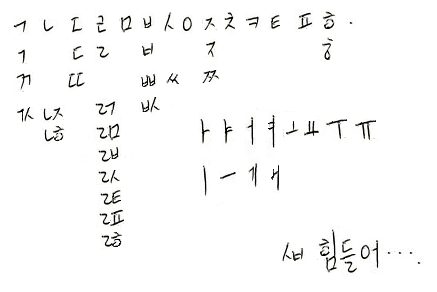 ㄱ ㄴ ㄷ ㄹ ㅁ ㅂ ㅅ ㅇ ㅈ ㅊ ㅋ ㅌ ㅍ ㅎ .
ㄱ ㄷ ㄹ ㅂ ㅈ ㅎ
ㄲ ㄸ ㅃ ㅆ ㅉ
ㄳ ㄵ ㄺ ㅄ
ㄶ ㄻ
ㄼ
ㄽ
ㄾ
ㄿ
ㅀ
ㅏ ㅑ ㅓ ㅕ ㅗ ㅛ ㅜ ㅠ
ㅣ ㅡ ㅔ ㅐ
ㅅㅂ 힘들어....